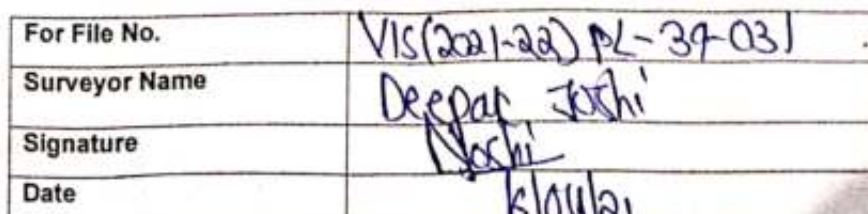 For File No. VIS(2021-22) PL-39-031
Surveyor Name Deepak Joshi
Signature Joshi
Date